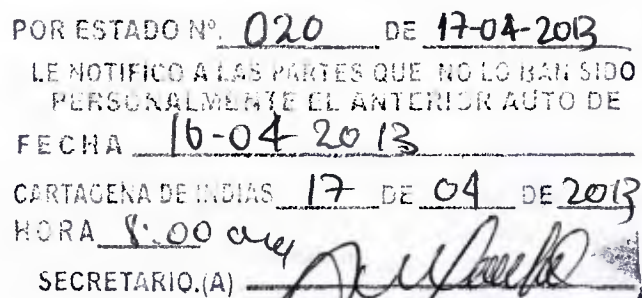 POR ESTADO Nº. 020 DE 17-04-2013
LE NOTIFICO A LAS PARTES QUE NO LO HAN SIDO
PERSONALMENTE EL ANTERIOR AUTO DE
FECHA 16-04-2013
CARTAGENA DE INDIAS 17 DE 04 DE 2013
HORA 8:00 am
SECRETARIO.(A)